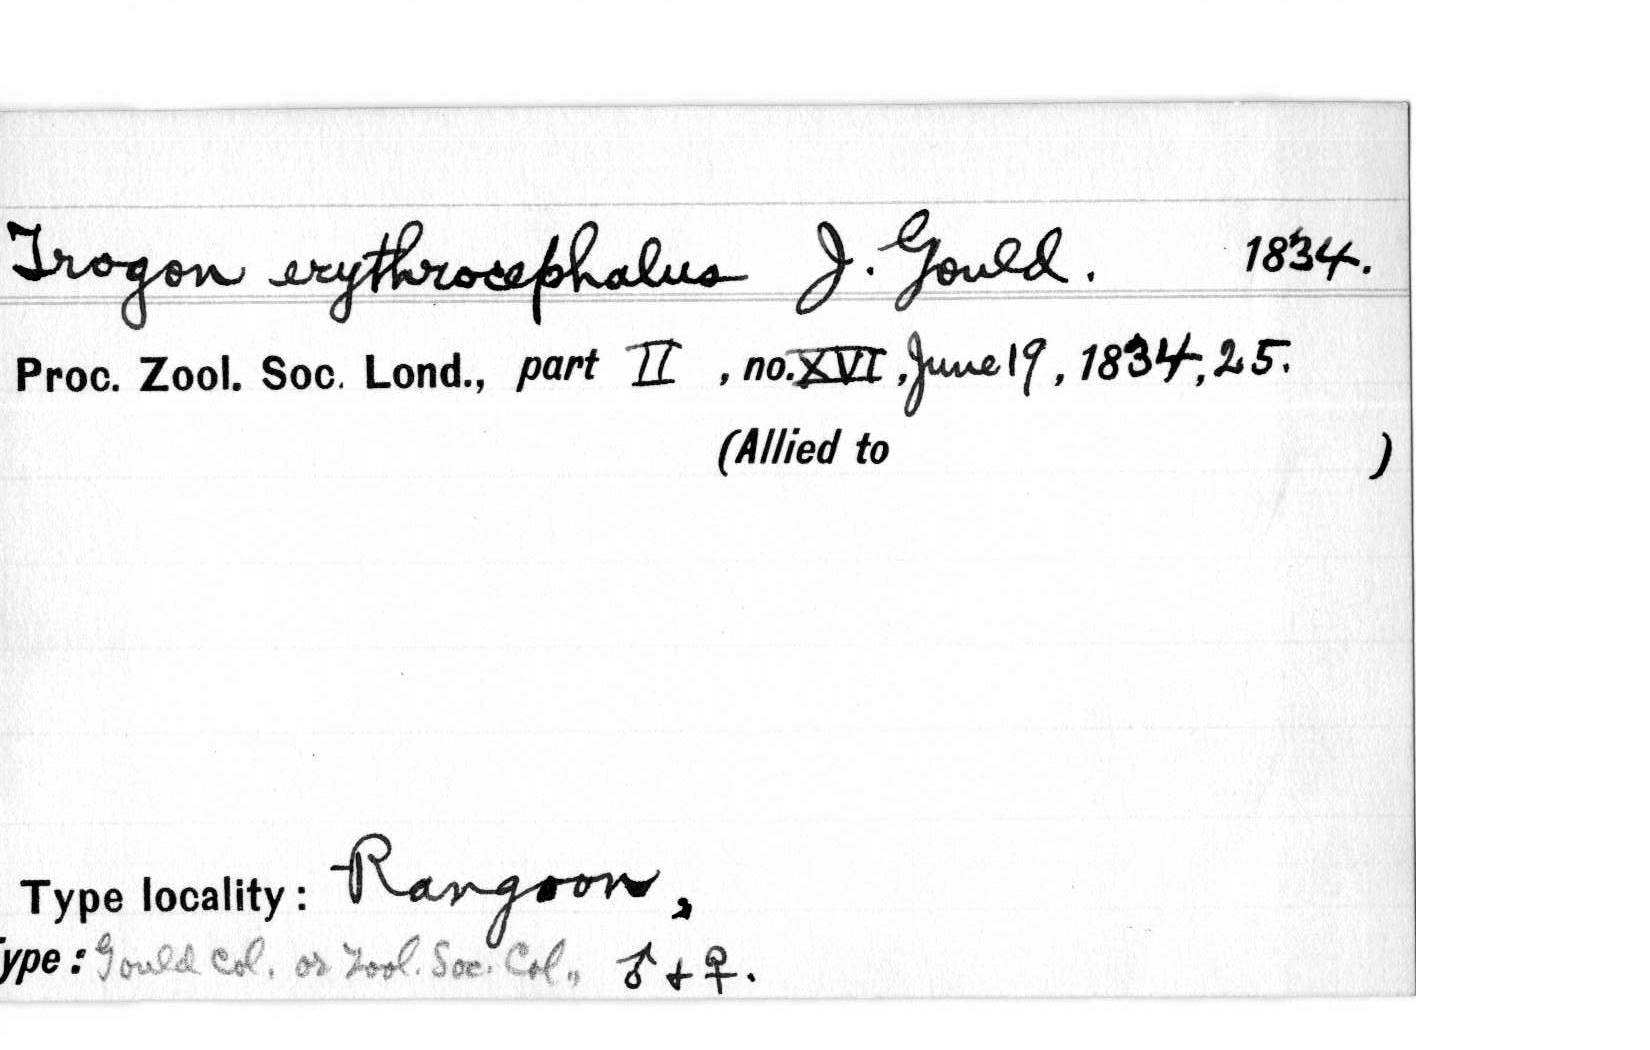 Trogon erythrocephalus J. Gould. 1834.
Proc. Zool. Soc. Lond., part II, no. XVI, June 19, 1834, 25.
(Allied to )
Type locality: Rangoon,
ype: Gould Col. or Zool. Soc. Col., ♂ + ♀.